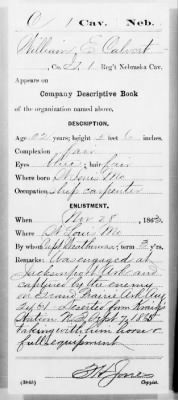 C | 1 Cav. | Neb.
William E Calvert
Co. , 1 Reg't Nebraska Cav.
Appears on
Company Descriptive Book
of the organization named above.
DESCRIPTION.
Age 22 years; height 5 feet 6 inches.
Complexion fair
Eyes blue; hair fair
Where born St Louis Mo
Occupation Ship carpenter
ENLISTMENT.
When Nov 28, 186
Where St Louis Mo
By Capt ; term 3 y'rs.
Remarks: Was engaged at
Jacksonport Ark and
captured by the enemy
on Grand Prairie Ark Aug
24/64 Deserted from
Station N.T. Sept 7, 1865
taking with him horse &
full equipment
Jones
Copyist.